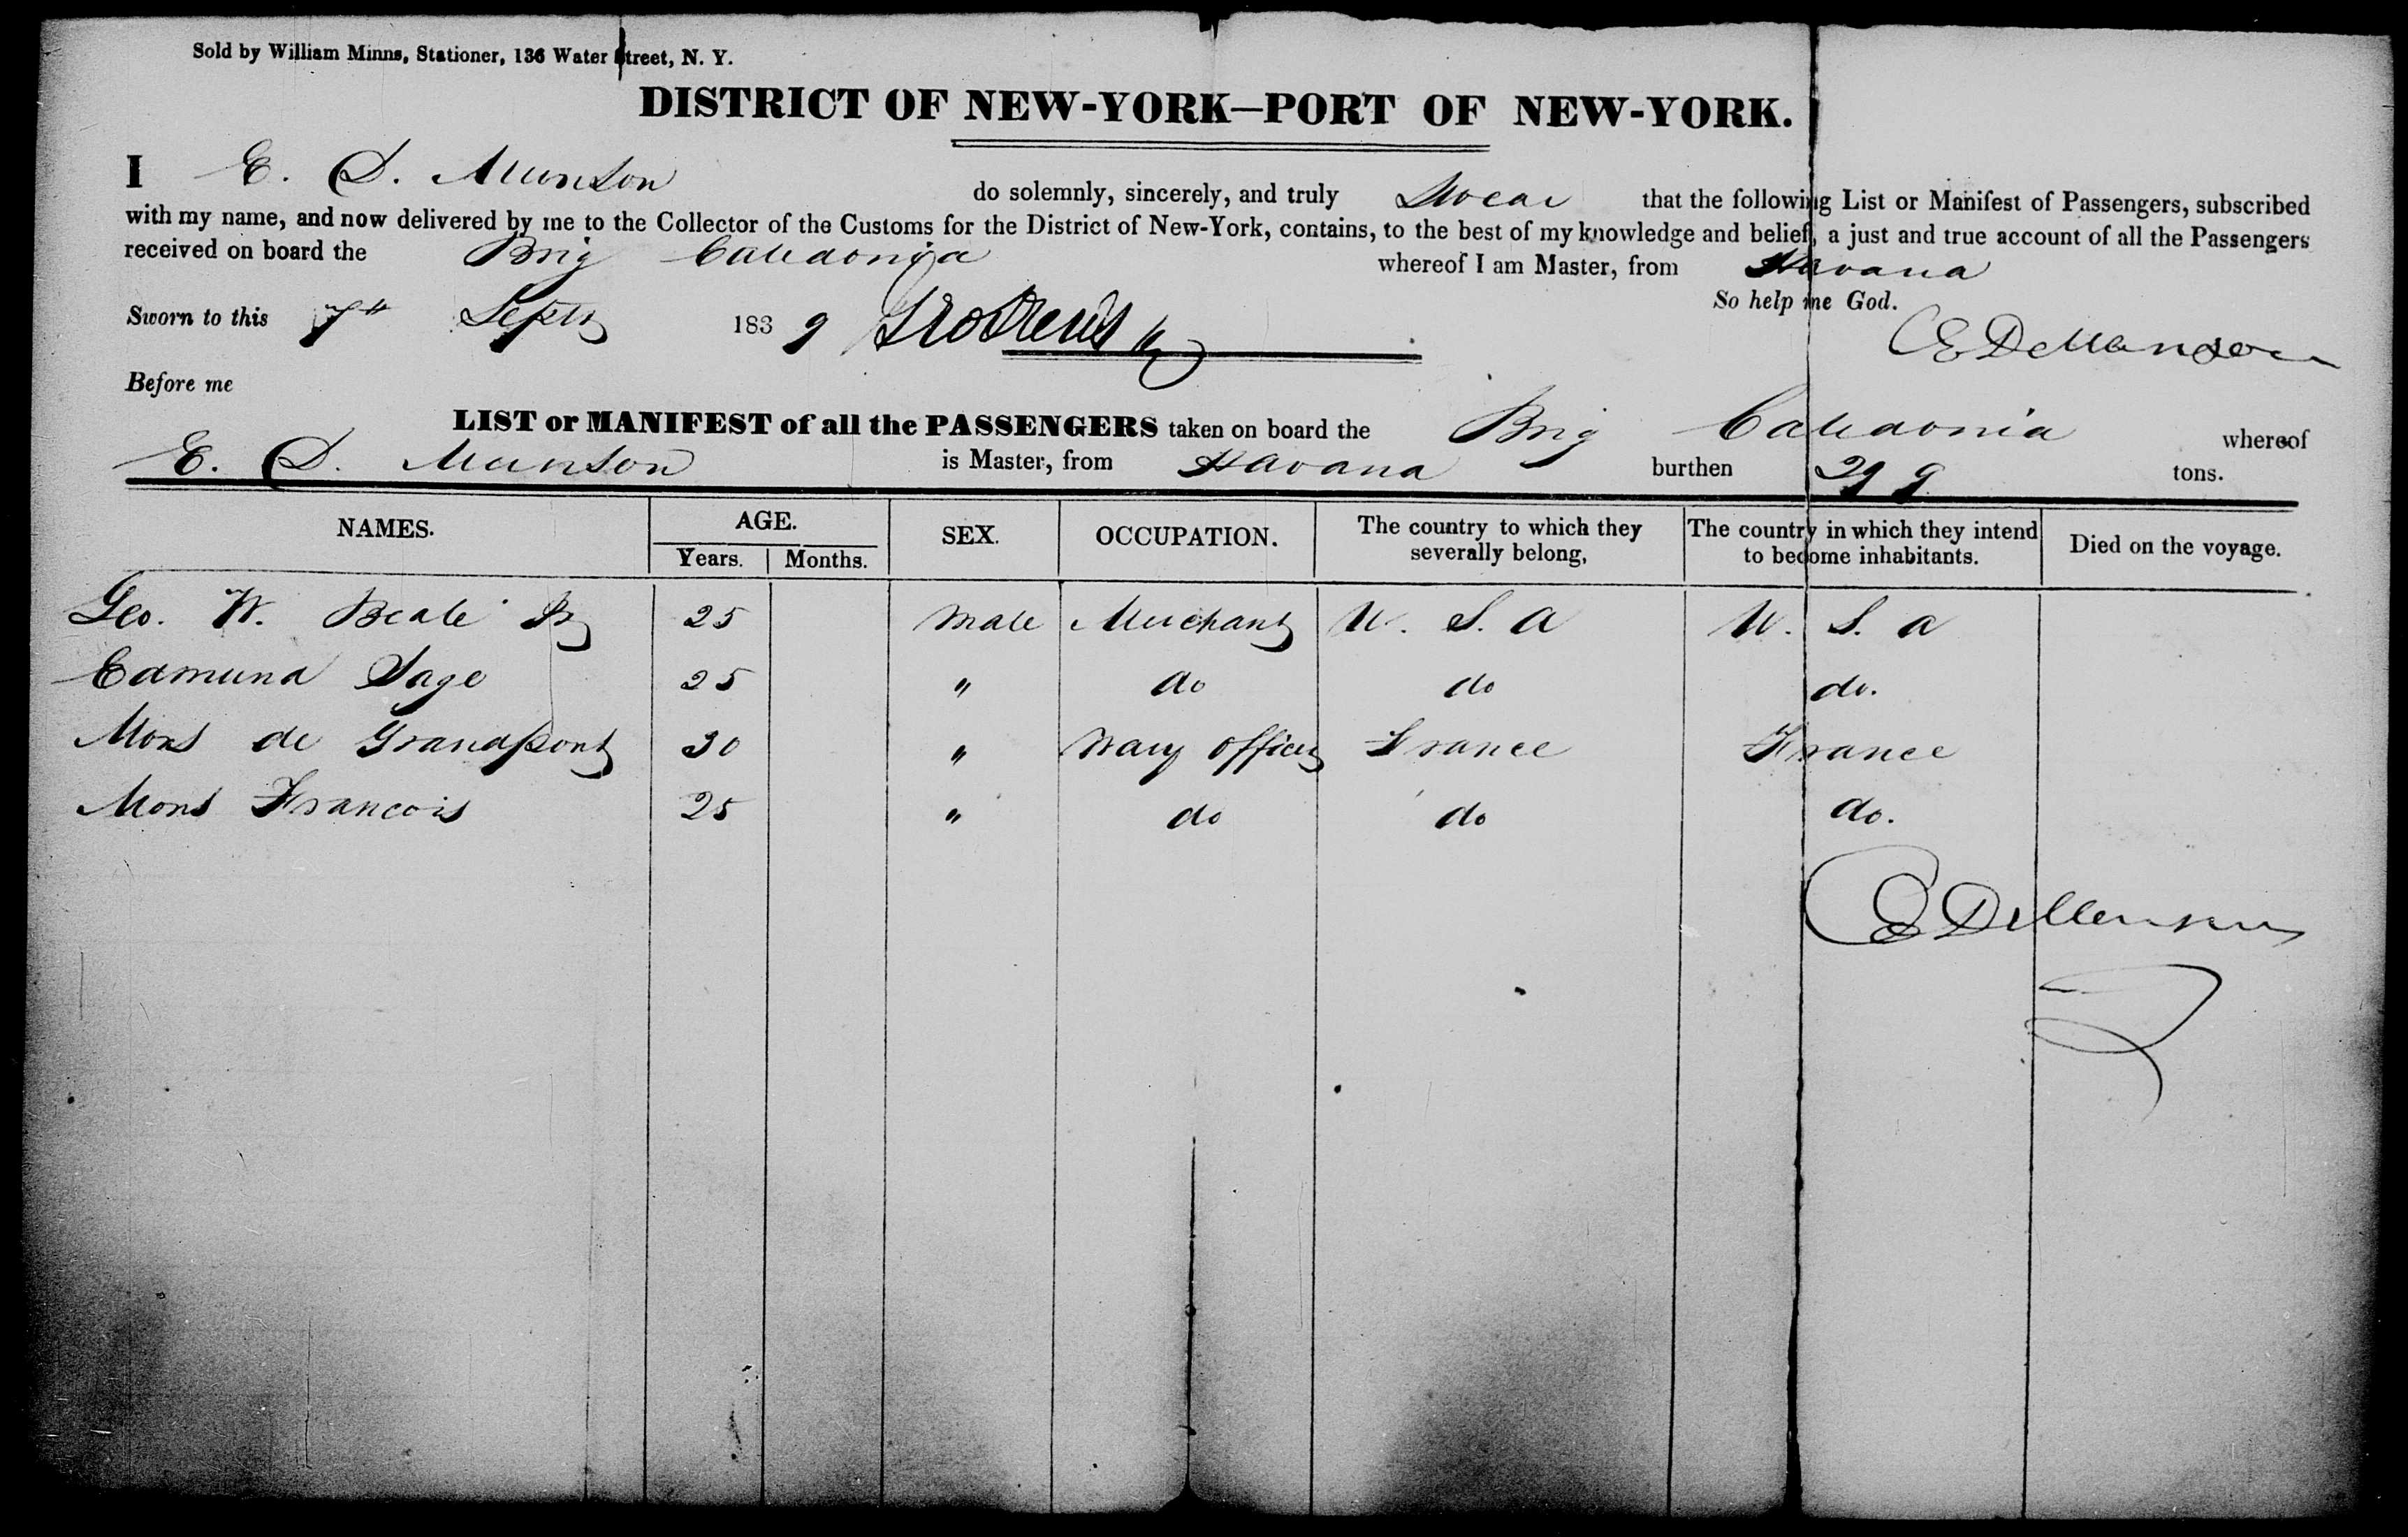 Sold by William Minns, Stationer, 136 Water Street, N. Y.
DISTRICT OF NEW-YORK—PORT OF NEW-YORK.
I E. D. Munson do solemnly, sincerely, and truly Swear that the following List or Manifest of Passengers, subscribed
with my name, and now delivered by me to the Collector of the Customs for the District of New-York, contains, to the best of my knowledge and belief, a just and true account of all the Passengers
received on board the Brig Caledonia whereof I am Master, from Havana
So help me God.
Sworn to this 7th Septr 1839
E D Munson
Before me
LIST or MANIFEST of all the PASSENGERS taken on board the Brig Caledonia whereof
E. D. Munson is Master, from Havana burthen 299 tons.
NAMES. AGE. Years. Months. SEX. OCCUPATION. The country to which they severally belong, The country in which they intend to become inhabitants. Died on the voyage.
Geo. W. Beale Jr 25 Male Merchant U. S. A U. S. A
Edmund Sage 25 " do do do.
Mons de Grandpont 30 " Navy Officer France France
Mons Francois 25 " do do do.
E D Munson